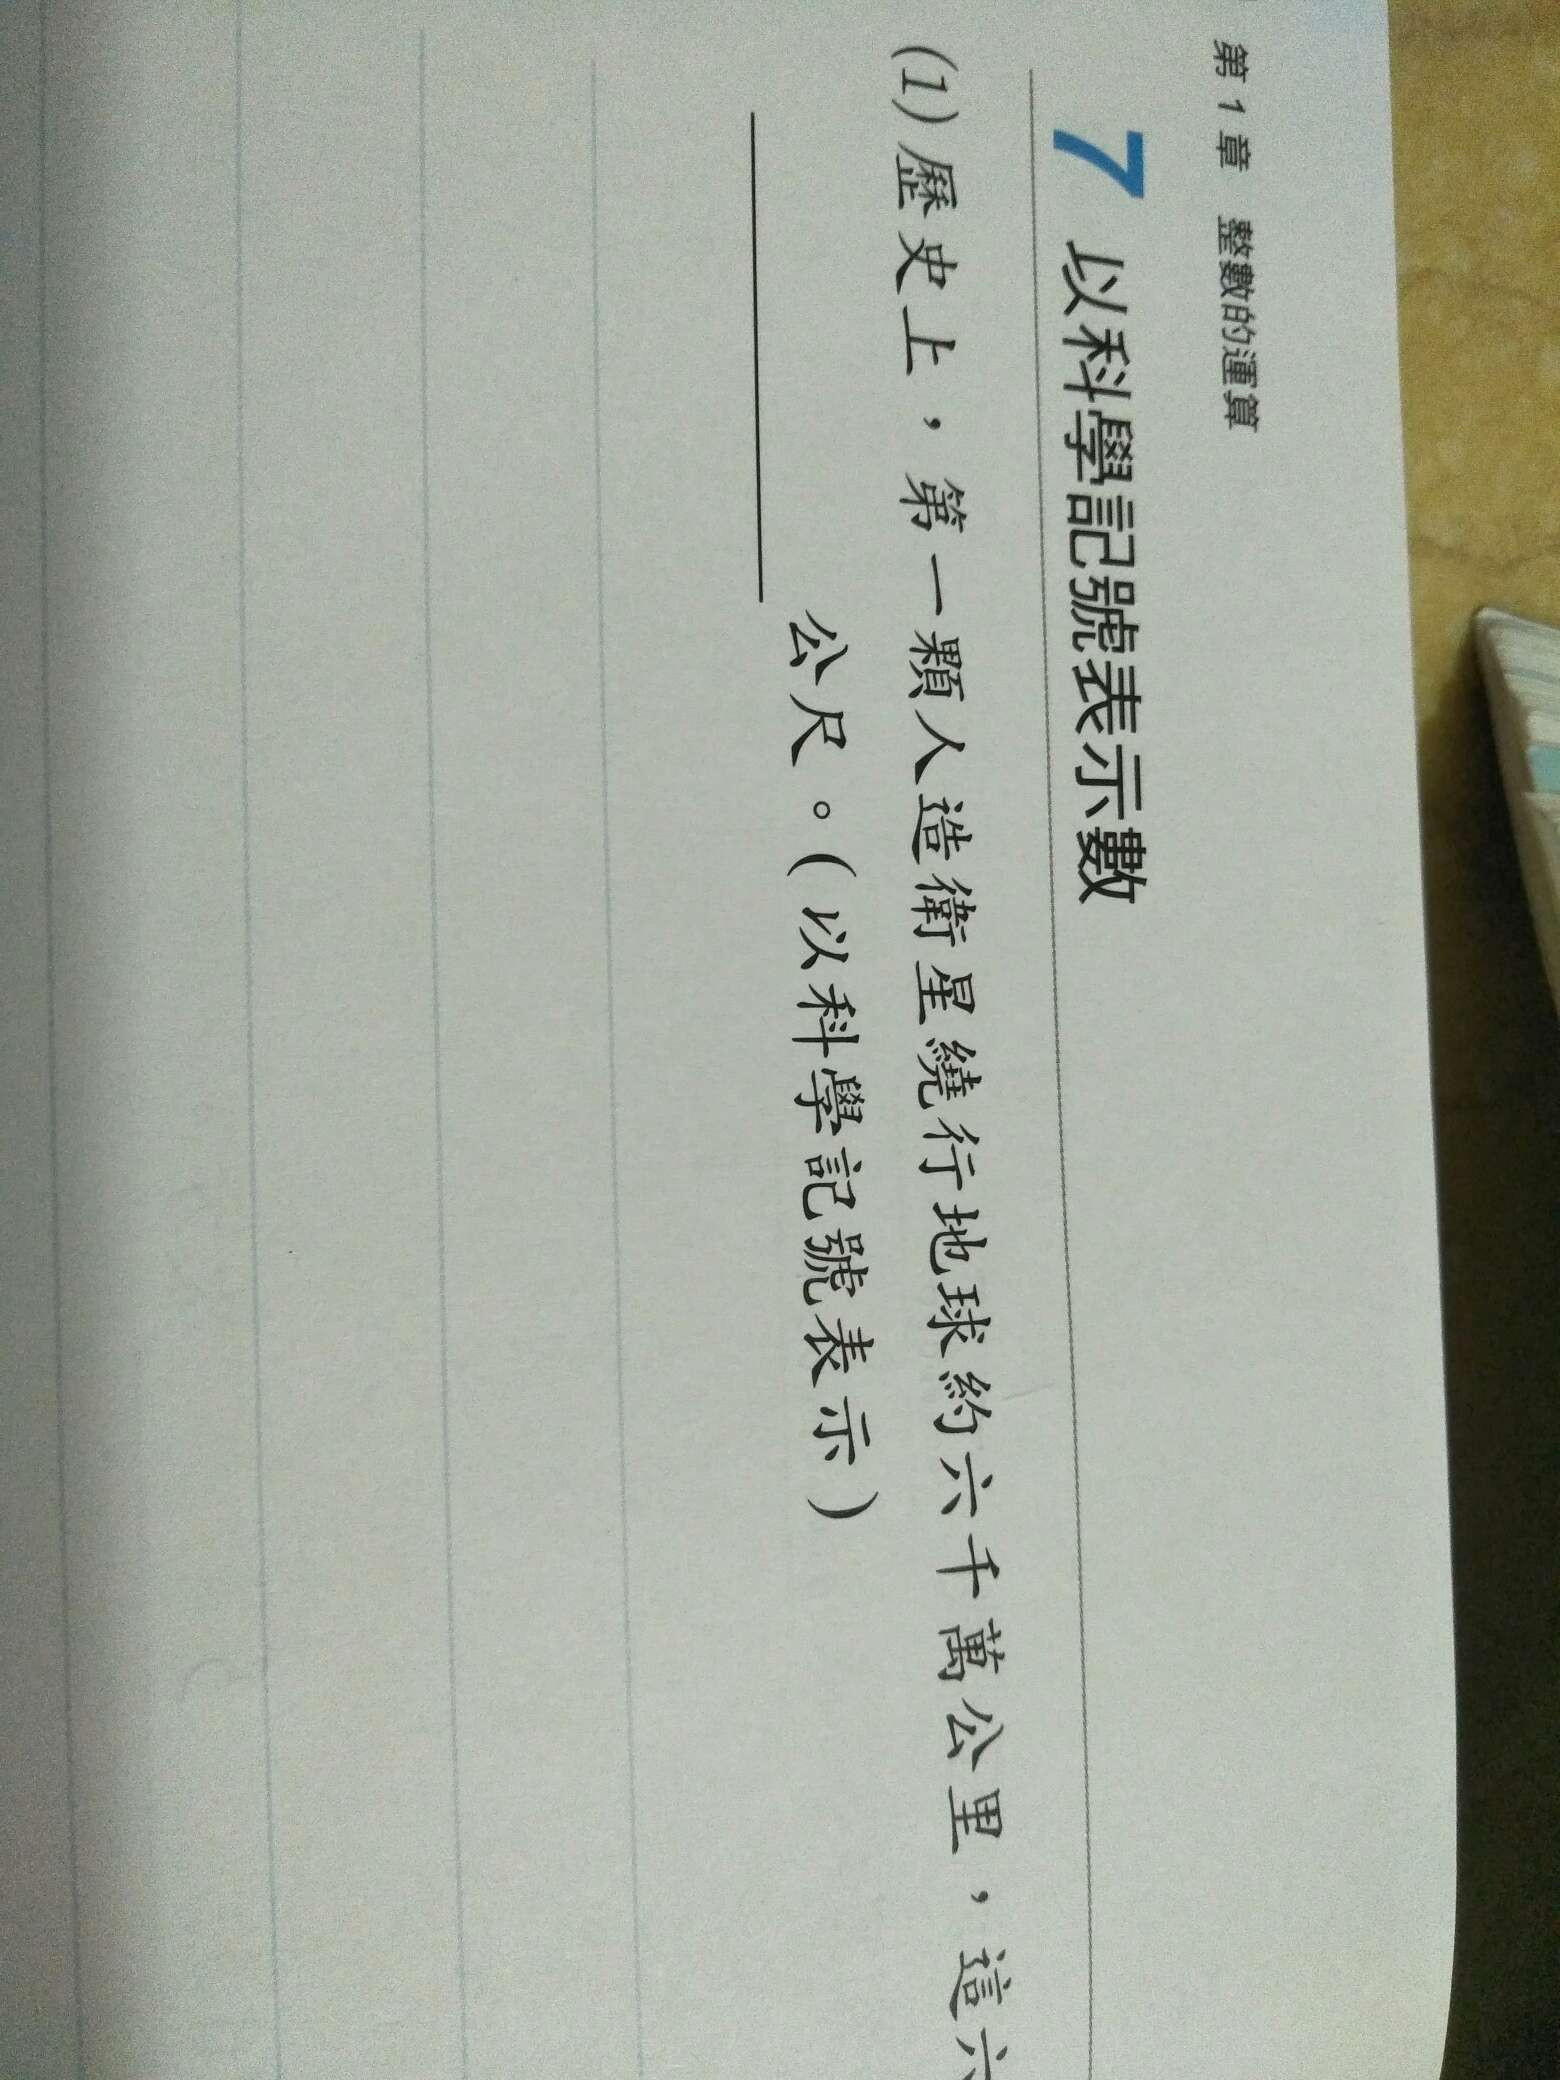 第 1 章 整數的運算
7 以科學記號表示數
(1)歷史上，第一顆人造衛星繞行地球約六千萬公里，這六
公尺。(以科學記號表示)